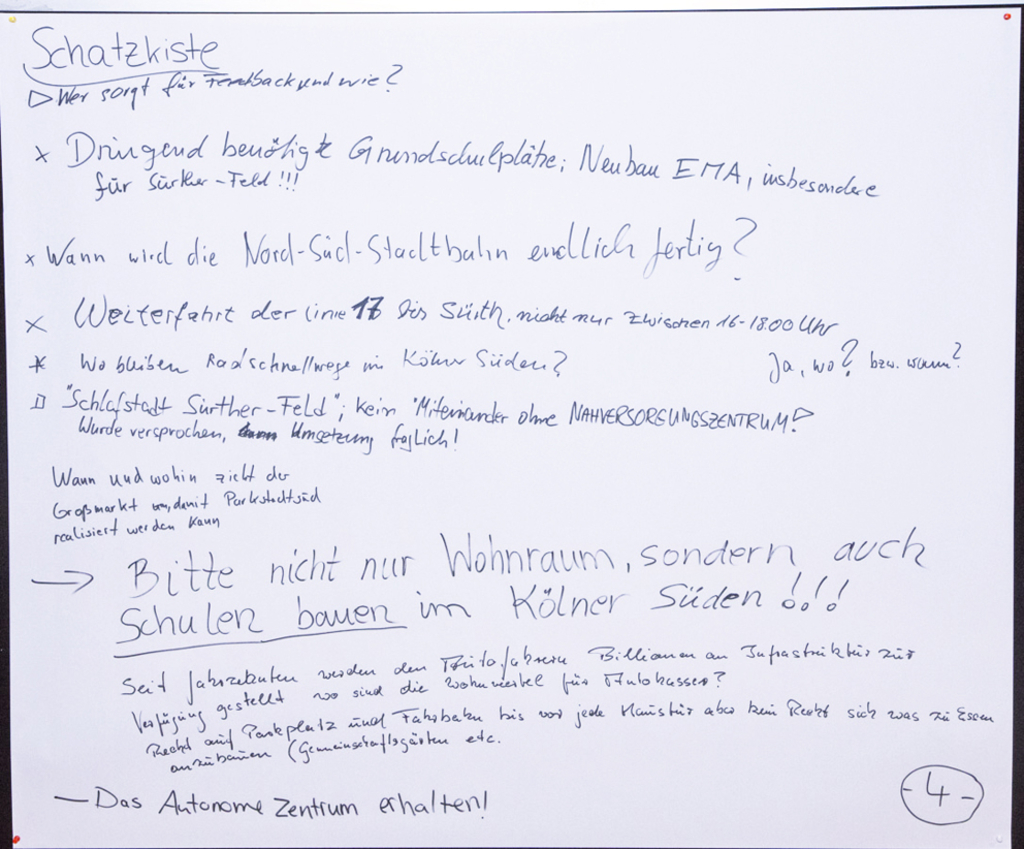 Schatzkiste
▷ Wer sorgt für Feedback und wie?
x Dringend benötigte Grundschulplätze; Neubau EMA, insbesondere
für Sürther-Feld!!!
x Wann wird die Nord-Süd-Stadtbahn endlich fertig?
x Weiterfahrt der Linie 17 bis Sürth, nicht nur zwischen 16-18.00 Uhr
x Wo bleiben Radschnellwege im Kölner Süden? Ja, wo? bzw. wann?
"Schlafstadt Sürther-Feld"; kein Miteinander ohne NAHVERSORGUNGSZENTRUM!
Wurde versprochen, Umsetzung fraglich!
Wann und wohin zieht der
Großmarkt um, damit Parkstadtsüd
realisiert werden kann
→ Bitte nicht nur Wohnraum, sondern auch
Schulen bauen im Kölner Süden!!!
Seit Jahrzehnten werden den Autofahrern Billionen an Infrastruktur zur
Verfügung gestellt wo sind die Wohnviertel für Autohasser?
Recht auf Parkplatz und Fahrbahn bis vor jede Haustür aber kein Recht sich was zu Essen
anzubauen (Gemeinschaftsgärten etc.
— Das Autonome Zentrum erhalten!
-4-